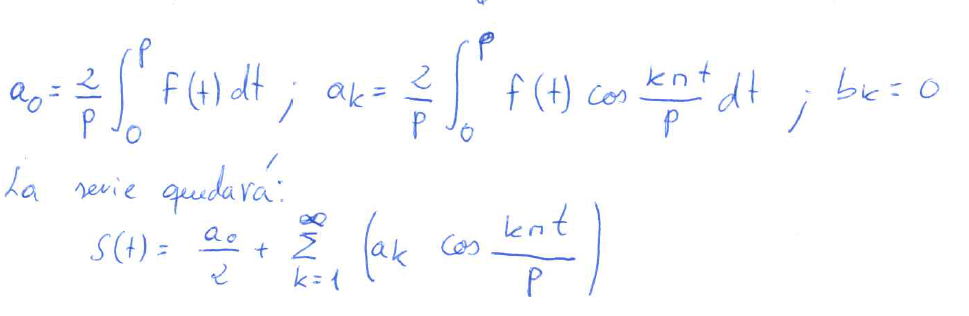 a₀ = 2/p ∫₀ᵖ f(t) dt ; aₖ = 2/p ∫₀ᵖ f(t) cos kπt/p dt ; bₖ = 0
La serie quedará:
S(t) = a₀/2 + ∑ₖ₌₁^∞ (aₖ cos kπt/p)